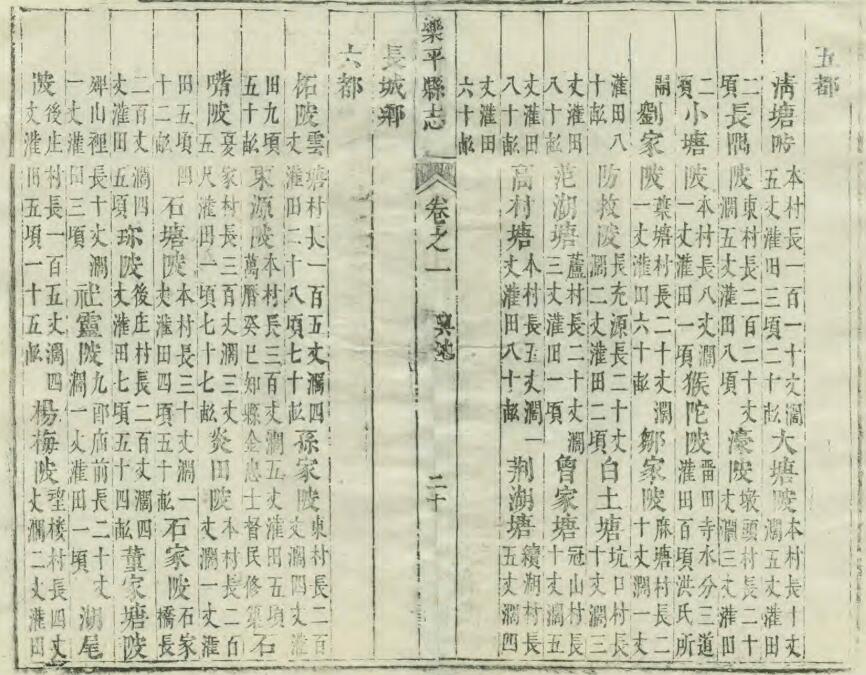 五都
淸塘陂本村長一百一十丈濶五丈灌田三頃二十畝大塘陂本村長十丈濶五丈灌田
二頃長隅陂東村長二百二十丈濶五丈灌田八頃濠陂墩頭村長二十丈濶三丈灌田
二頃小塘陂本村長八丈濶一丈灌田一頃猴陀陂雷田寺水分三道灌田百頃洪氏所
開劉家陂葉塘村長二十丈濶一丈灌田六十畝鄒家陂麻塘村長二十丈濶一丈
灌田八十畝防救陂長充源長二十丈濶二丈灌田二頃白土塘坑口村長十丈濶三
丈灌田八十畝范湖塘蘆村長二十丈濶三丈灌田一頃曾家塘冠山村長十丈濶五
丈灌田八十畝高村塘本村長五丈濶一丈灌田八十畝荆湖塘續湖村長五丈濶四
丈灌田六十畝
樂平縣志 卷之一 輿地 二十
長城鄉
六都
柘陂雲塘村長一百五丈濶四丈灌田二十八頃七十畝孫家陂東村長二百丈濶四丈灌
田九頃五十畝東源陂本村長三百丈濶五丈灌田五頃萬曆癸巳知縣金忠士督民修築石
嘴陂夏家村長三百丈濶三丈五尺灌田一頃七十七畝炎田陂本村長二百丈濶一丈灌
田五頃四十二畝石塘陂本村長三十丈濶一丈灌田四頃五十畝石家陂石家橋長
二百丈濶四丈灌田五頃珎陂後庄村長二百丈濶四丈灌田七頃五十四畝董家塘陂
鄉山裡長十丈濶一丈灌田三頃社靈陂九郎庙前長二十丈濶一丈灌田一頃湖尾
陂後庄村長一百五丈濶四丈灌田五頃一十五畝楊梅陂望楼村長四丈丈濶二丈灌田